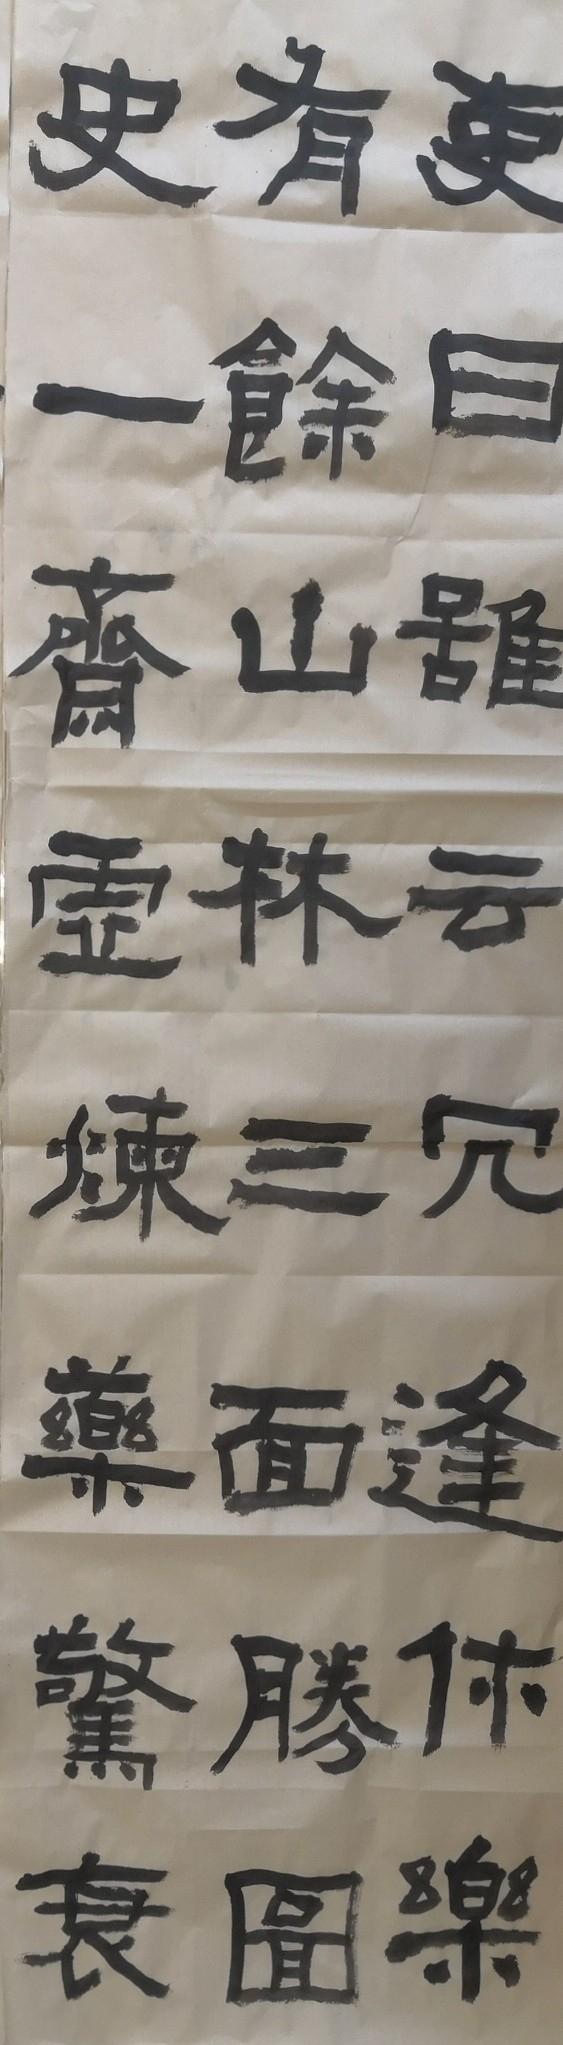 吏日雖云冗逢休樂
有餘山林三面勝圖
史一齋虛煉藥驚衰